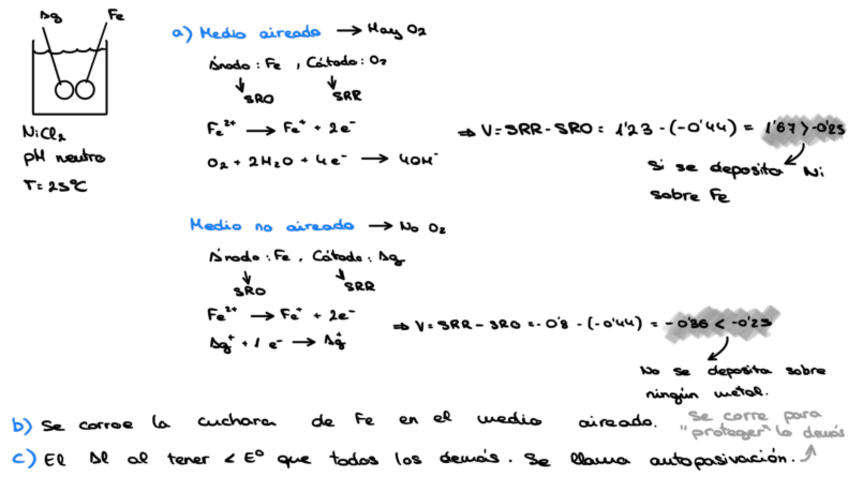 Ag Fe
NiCl₂
pH neutro
T=25ºC
a) Medio aireado → Hay O₂
Ánodo: Fe, Cátodo: O₂
SRO SRR
Fe²⁺ → Fe⁺ + 2e⁻
O₂ + 2H₂O + 4e⁻ → 4OH⁻
⇒ V = SRR - SRO = 1'23 - (-0'44) = 1'67 > -0'25
Si se deposita Ni
sobre Fe
Medio no aireado → No O₂
Ánodo: Fe, Cátodo: Ag
SRO SRR
Fe²⁺ → Fe⁺ + 2e⁻
Ag⁺ + 1 e⁻ → Ag⁺
⇒ V = SRR - SRO = -0'8 - (-0'44) = -0'36 < -0'25
No se deposita sobre
ningún metal.
b) Se corroe la cuchara de Fe en el medio aireado.
Se corre para
"proteger" lo demás
c) El Al al tener < Eº que todos los demás. Se llama autopasivación.